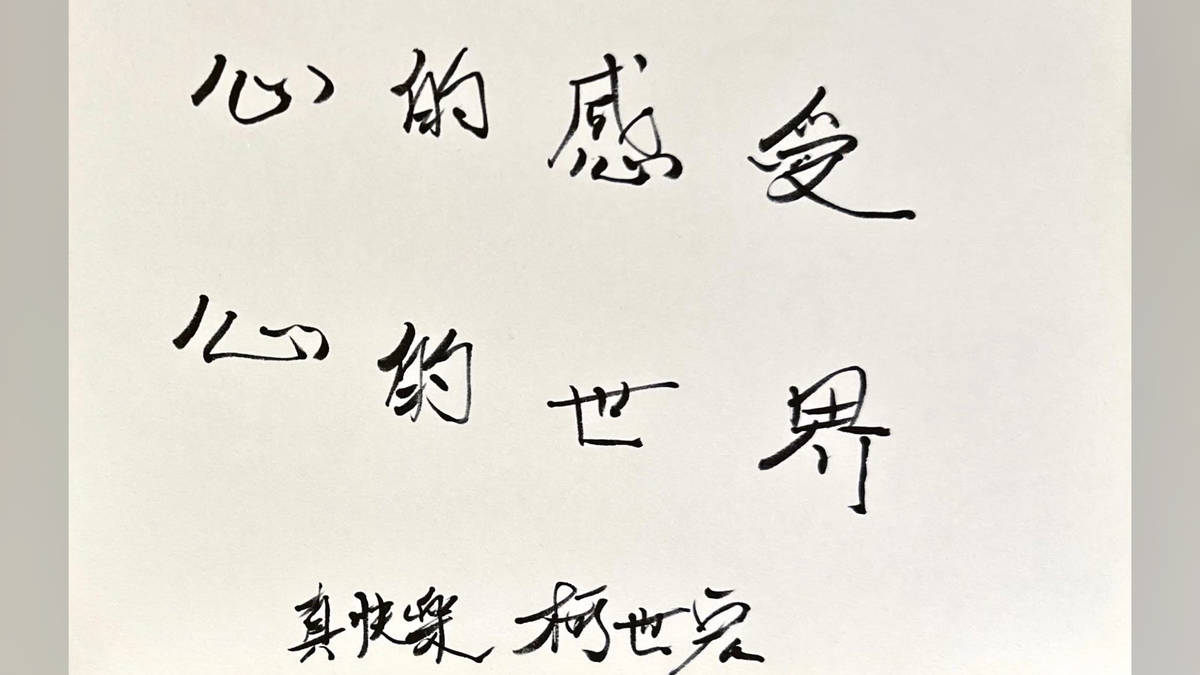 心的感受
心的世界
真快樂 柯世宏